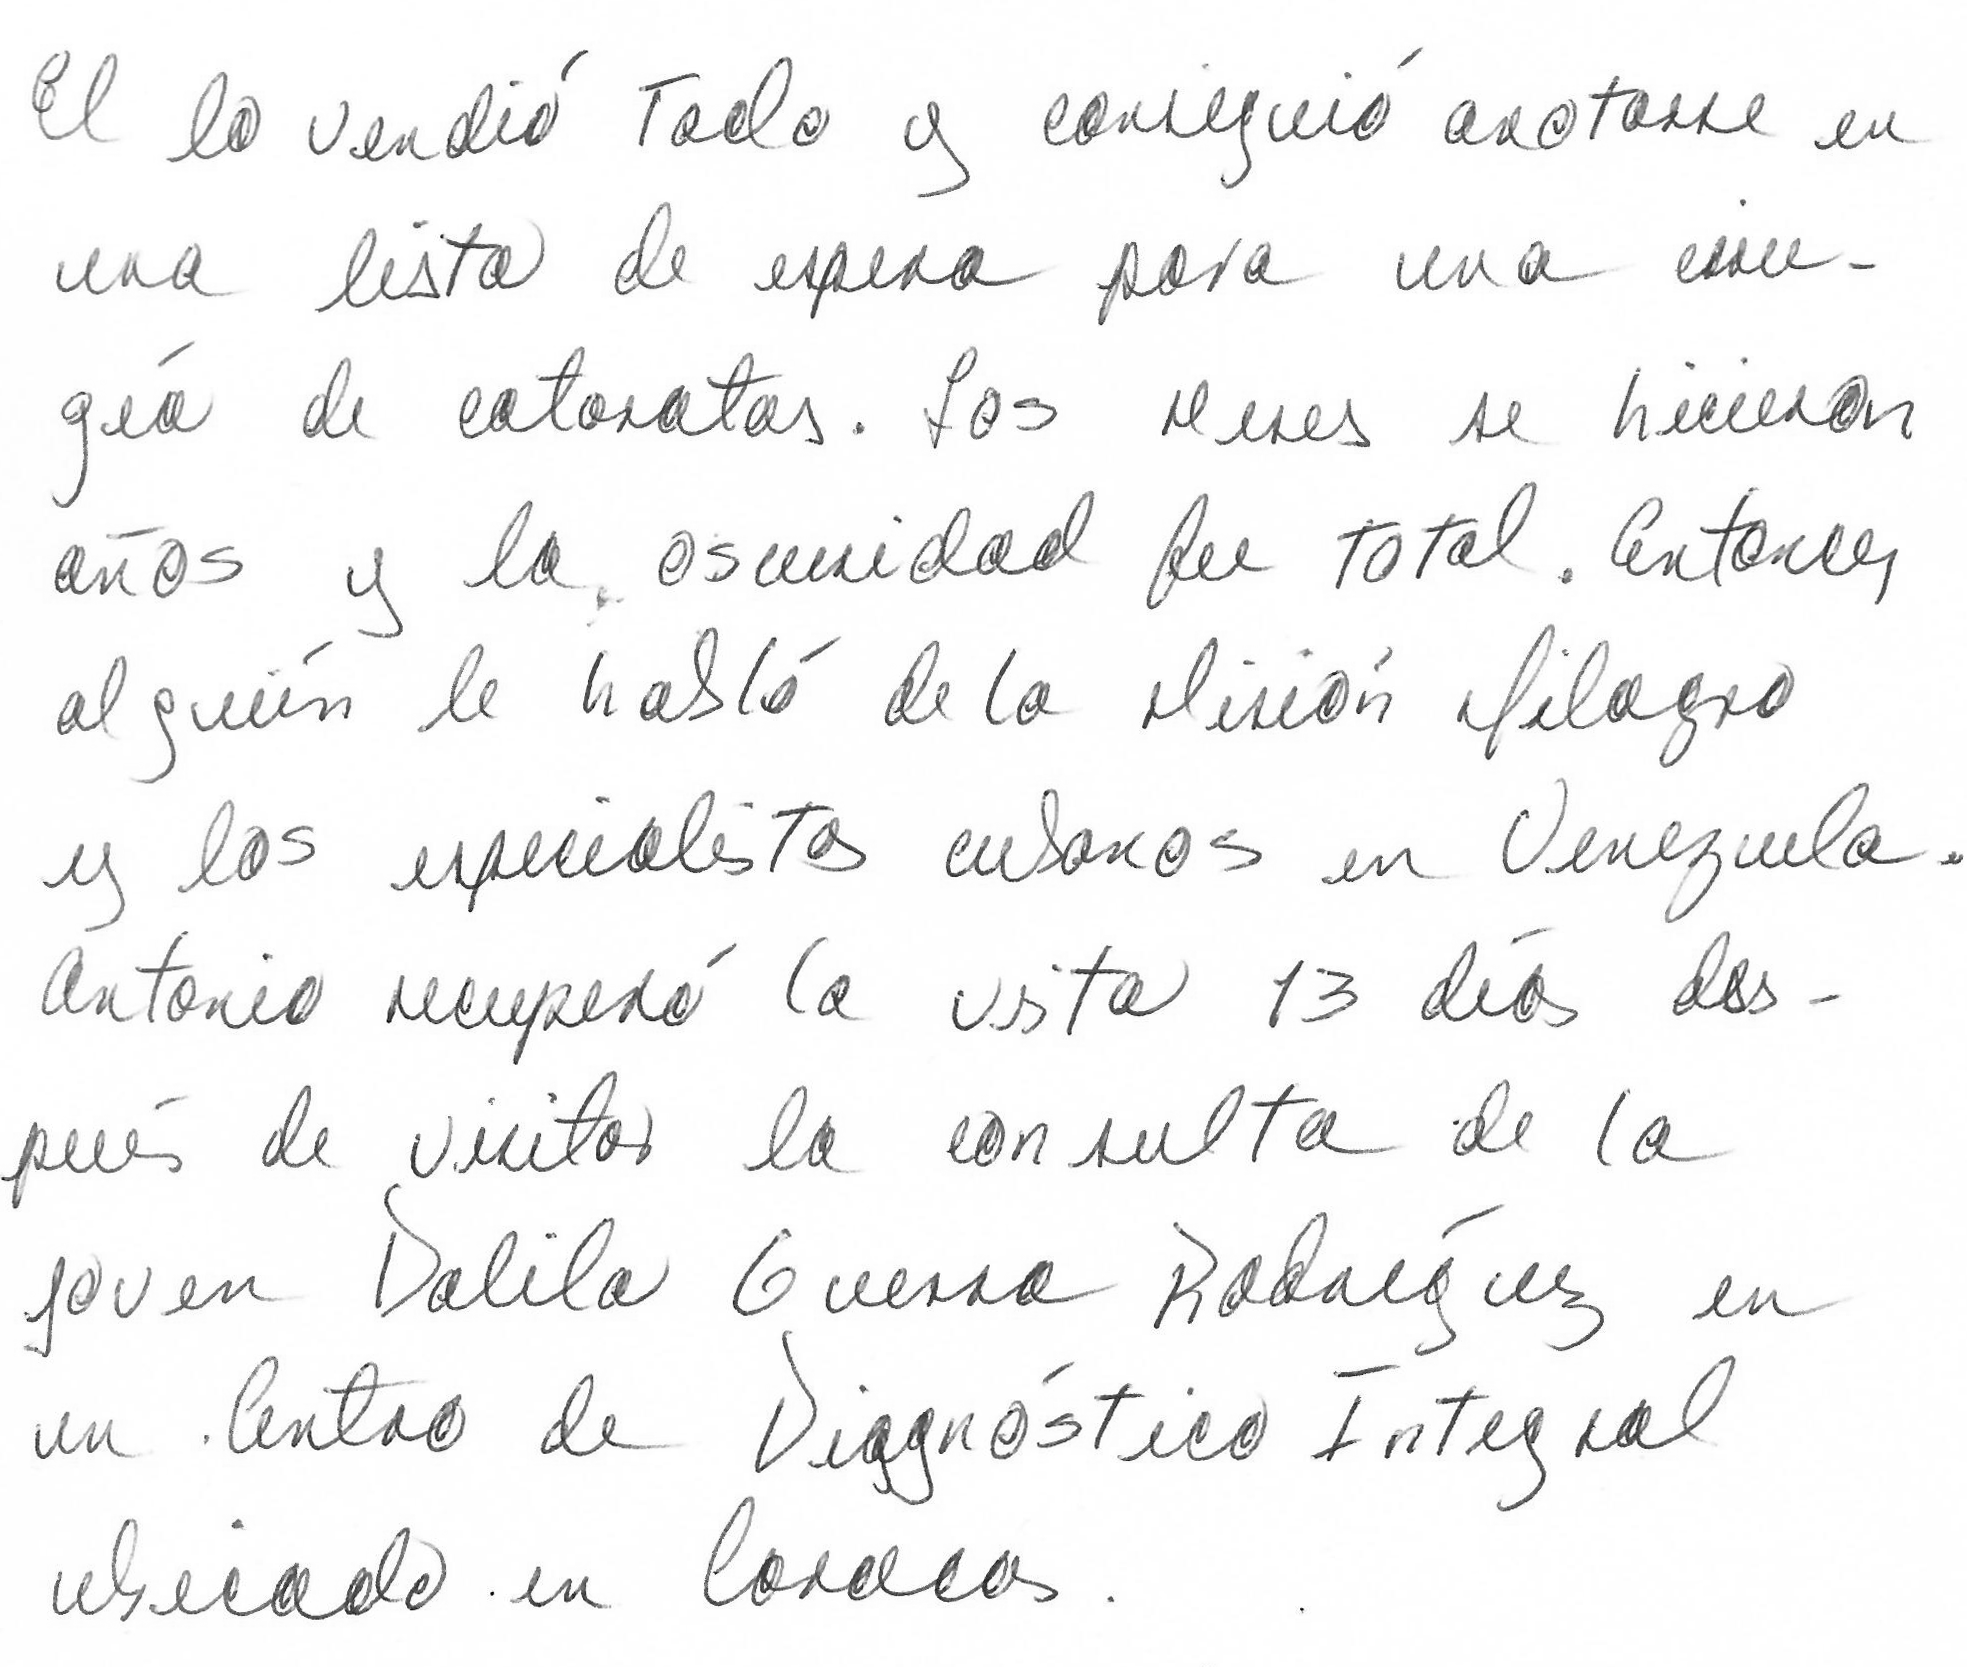 El lo vendió Todo y consiguió anotarse en
una lista de espera para una ciru-
gía de cataratas. Los meses se hicieron
años y la oscuridad fue total. Entonces
alguién le habló de la Misión Milagro
y los especialistas cubanos en Venezuela.
Antonio recuperó la vista 13 días des-
pués de visitar la consulta de la
joven Dalila Guerra Rodríguez en
un Centro de Diagnóstico Integral
ubicado en Caracas.